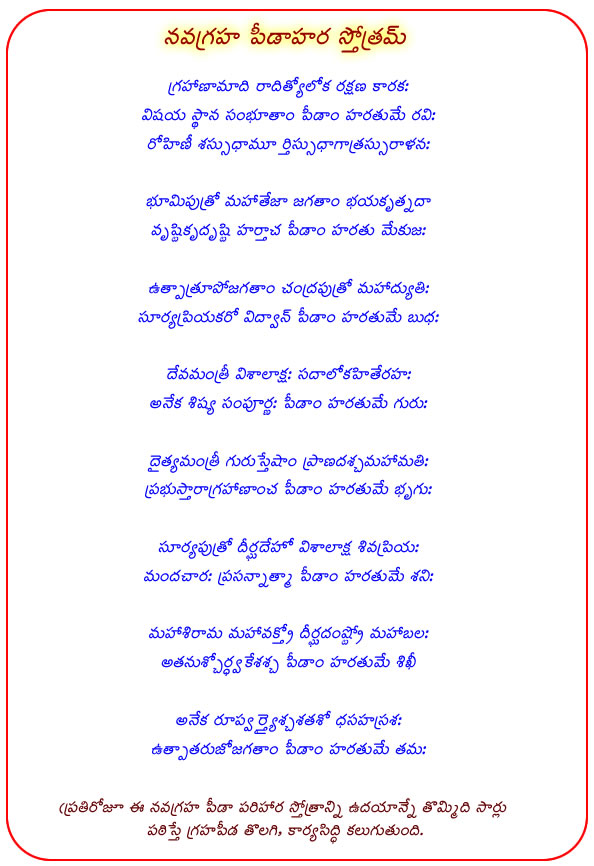 నవగ్రహ పీడాహర స్తోత్రమ్
గ్రహాణామాది రాదిత్యోలోక రక్షణ కారక:
విషయ స్థాన సంభూతాం పీడాం హరతుమే రవి:
రోహిణీ శస్సుధామూ ర్తిస్సుధాగాత్రస్సురాళన:
భూమిపుత్రో మహాతేజా జగతాం భయకృత్నదా
వృష్టికృదృష్టి హర్తాచ పీడాం హరతు మేకుజ:
ఉత్పాత్రూపోజగతాం చంద్రపుత్రో మహాద్యుతి:
సూర్యప్రియకరో విద్వాన్ పీడాం హరతుమే బుధ:
దేవమంత్రీ విశాలాక్ష: సదాలోకహితేరహ:
అనేక శిష్య సంపూర్ణ: పీడాం హరతుమే గురు:
దైత్యమంత్రీ గురుస్తేషాం ప్రాణదశ్చమహామతి:
ప్రభుస్తారాగ్రహాణాంచ పీడాం హరతుమే భృగు:
సూర్యపుత్రో దీర్ఘదేహో విశాలాక్ష శివప్రియ:
మందచార: ప్రసన్నాత్మా పీడాం హరతుమే శని:
మహాశిరామ మహావక్త్రో దీర్ఘదంష్ట్రో మహాబల:
అతనుశ్చోర్ధ్వకేశశ్చ పీడాం హరతుమే శిఖీ
అనేక రూప్వర్త్యైశ్చశతశో ధసహస్రశ:
ఉత్పాతరుజోజగతాం పీడాం హరతుమే తమ:
(ప్రతిరోజూ ఈ నవగ్రహ పీడా పరిహార స్తోత్రాన్ని ఉదయాన్నే తొమ్మిది సార్లు
పఠిస్తే గ్రహపీడ తొలగి, కార్యసిద్ధి కలుగుతుంది.